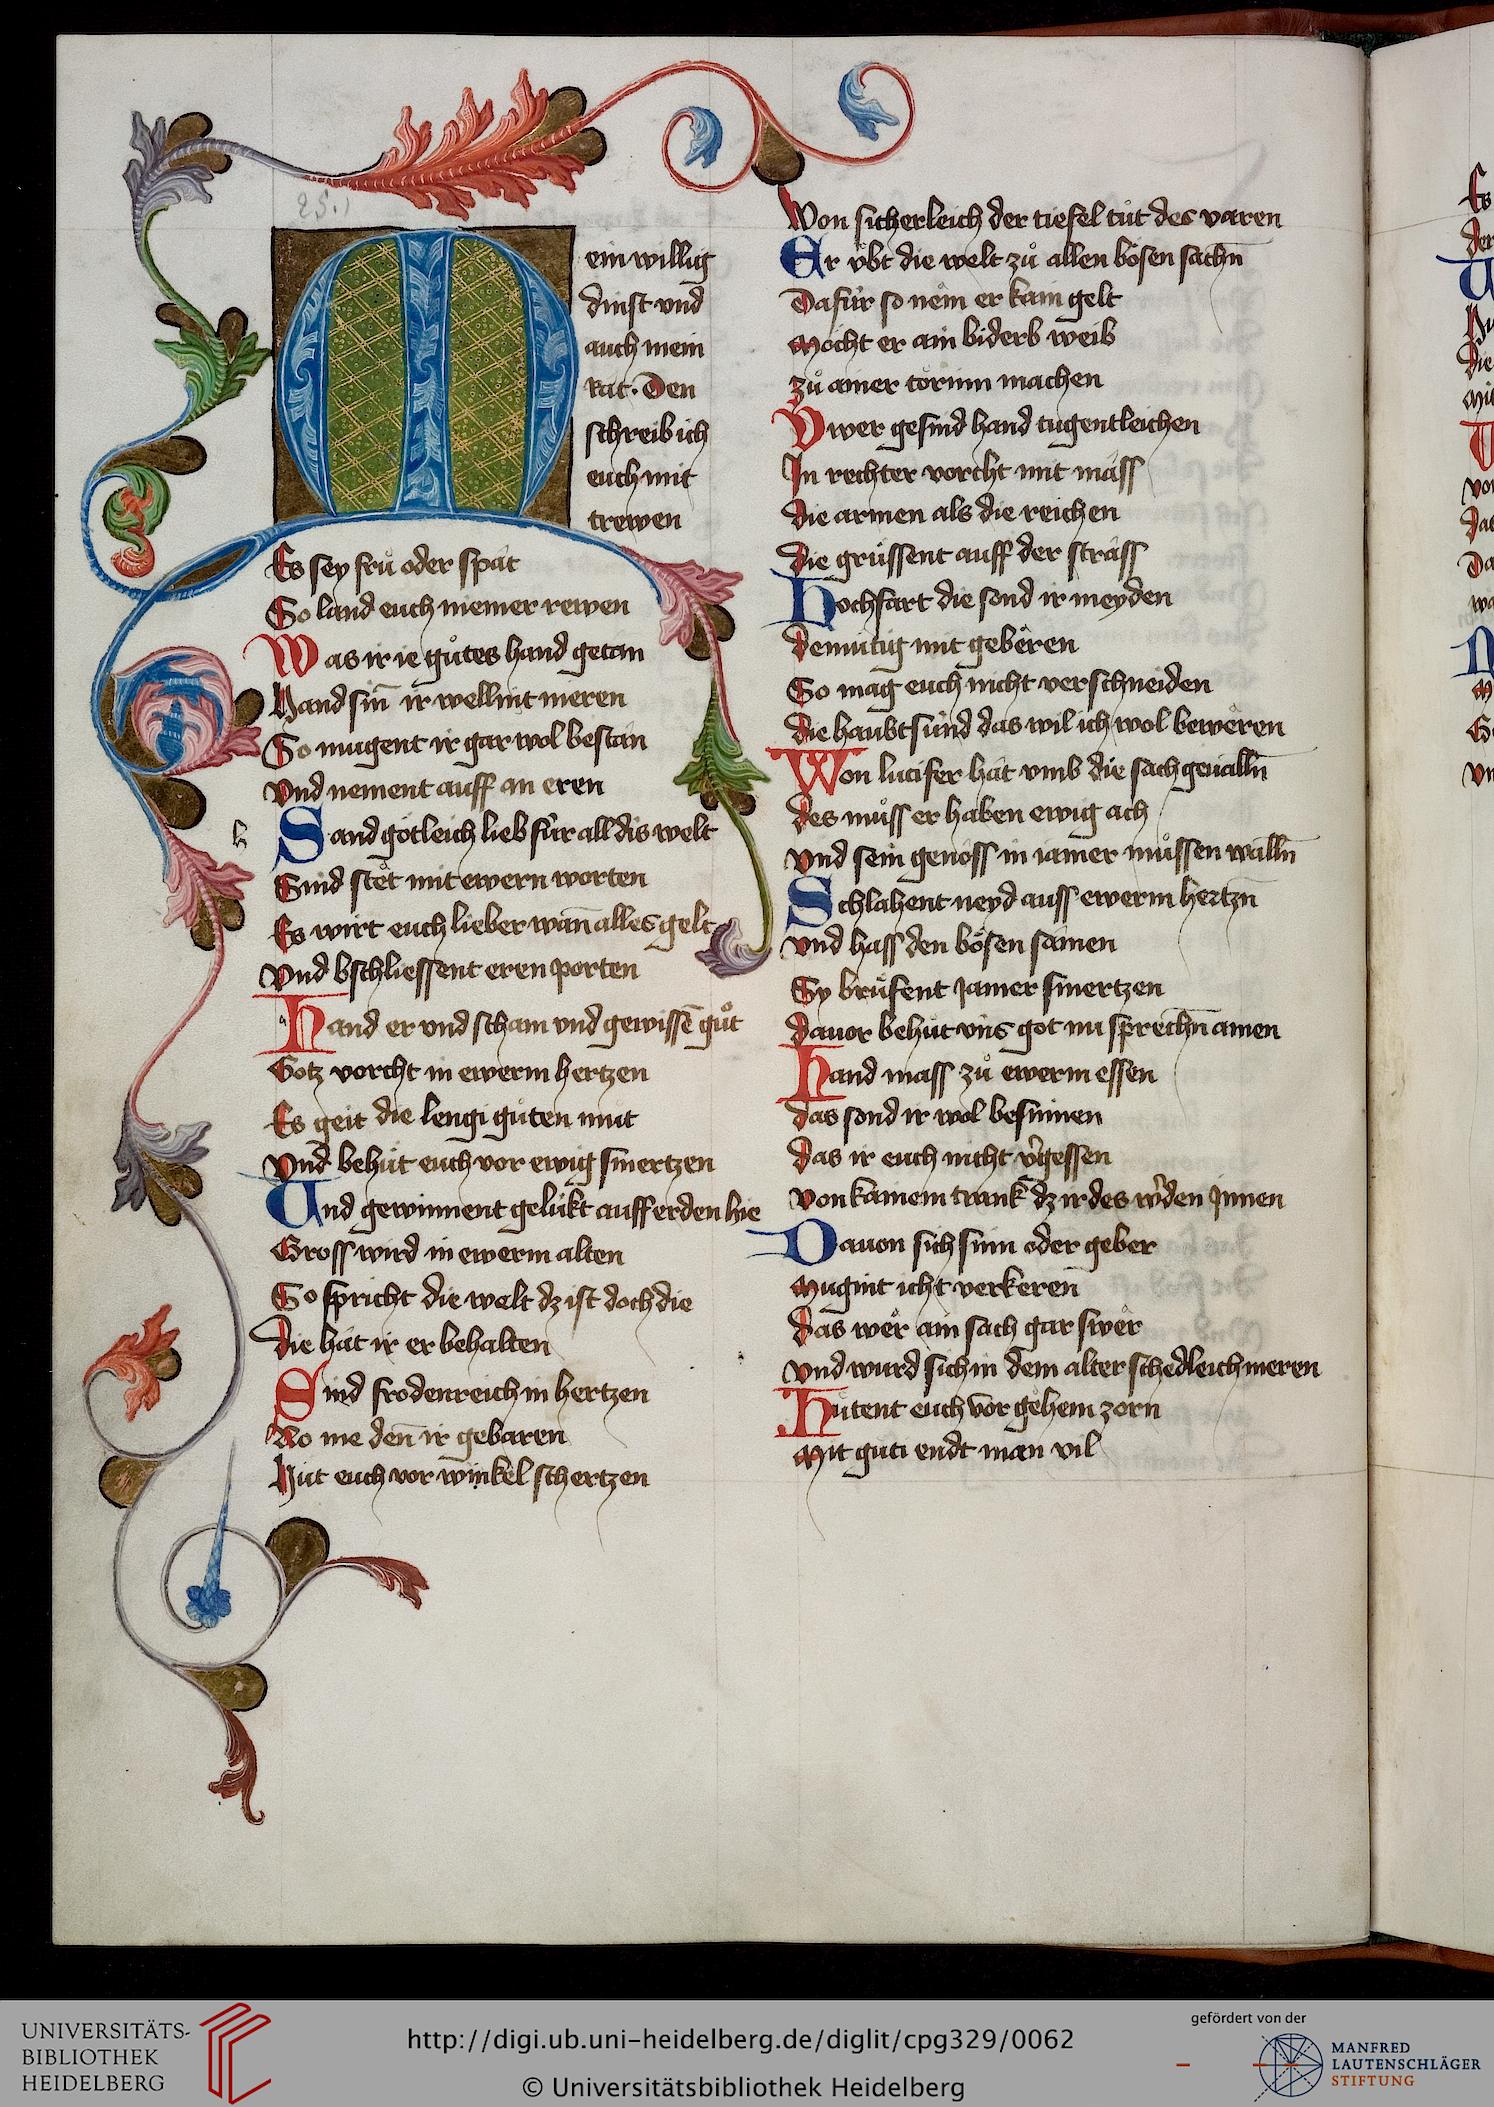 25.
Mein willig
dinst und
auch mein
Rat. Den
schreib ich
euch mit
trewen
Es sey frů oder spät
So land euch niemer rewen
Was ir ie gůtes hand getan
Hand sin̄ ir wellint meren
So mugent ir gar wol bestän
vnd nement auff an eren
h
Sand götleich lieb für all dis welt
Sind stët mit ewern worten
Es wirt euch lieber wan̄ alles gelt
vnd bschliessent eren porten
Hand er vnd scham vnd gewissē gůt
Gotz vorcht in ewerm hertzen
Es geit die lengi gůten můt
vnd behüt euch vor ewig smertzen
Und gewinnent gelükt auff erden hie
Gross wird in ewerm alten
So spricht die welt dz ist doch die
die hät ir er behalten
Sind frödenreich in hertzen
Wo me den̄ ir gebaren
Hüt euch vor winkel schertzen
Won sicherleich der tiefel tůt des varen
Er ůbt die welt zů allen bösen sachn̄
Dafür so nem er kain gelt
Möcht er ain biderb weib
zů ainer törinn machen
Vwer gesind hand tugentleichen
In rechter vorcht mit mäss
die armen als die reichen
die grůssent auff der sträss
Hochfart die sond ir meyden
demütig mit gebëren
So mag euch nicht verschneiden
die haubtsünd das wil ich wol bewëren
Won lucifer hät vmb die sach geualln̄
des můss er haben ewig ach
vnd sein genöss in iamer můssen walln̄
Schlahent neyd auss ewerm hertzn̄
vnd hass den bösen sämen
Sy brůfent Jamer smertzen
dauor behüt vns got nu sprechn̄ amen
Hand mass zů ewerm essen
das sond ir wol besinnen
das ir euch nicht v̓gessen
von kainem trank dz ir des w̓den Jnnen
Dauon sich sinn oder geber
mugint icht verkeren
das wër ain sach gar swër
vnd wurd sich in dem alter schedleich meren
Hütent euch vor gëhem zorn
Mit güti endt man vil
UNIVERSITÄTS-
BIBLIOTHEK
HEIDELBERG
http://digi.ub.uni-heidelberg.de/diglit/cpg329/0062
© Universitätsbibliothek Heidelberg
gefördert von der
MANFRED
LAUTENSCHLÄGER
STIFTUNG